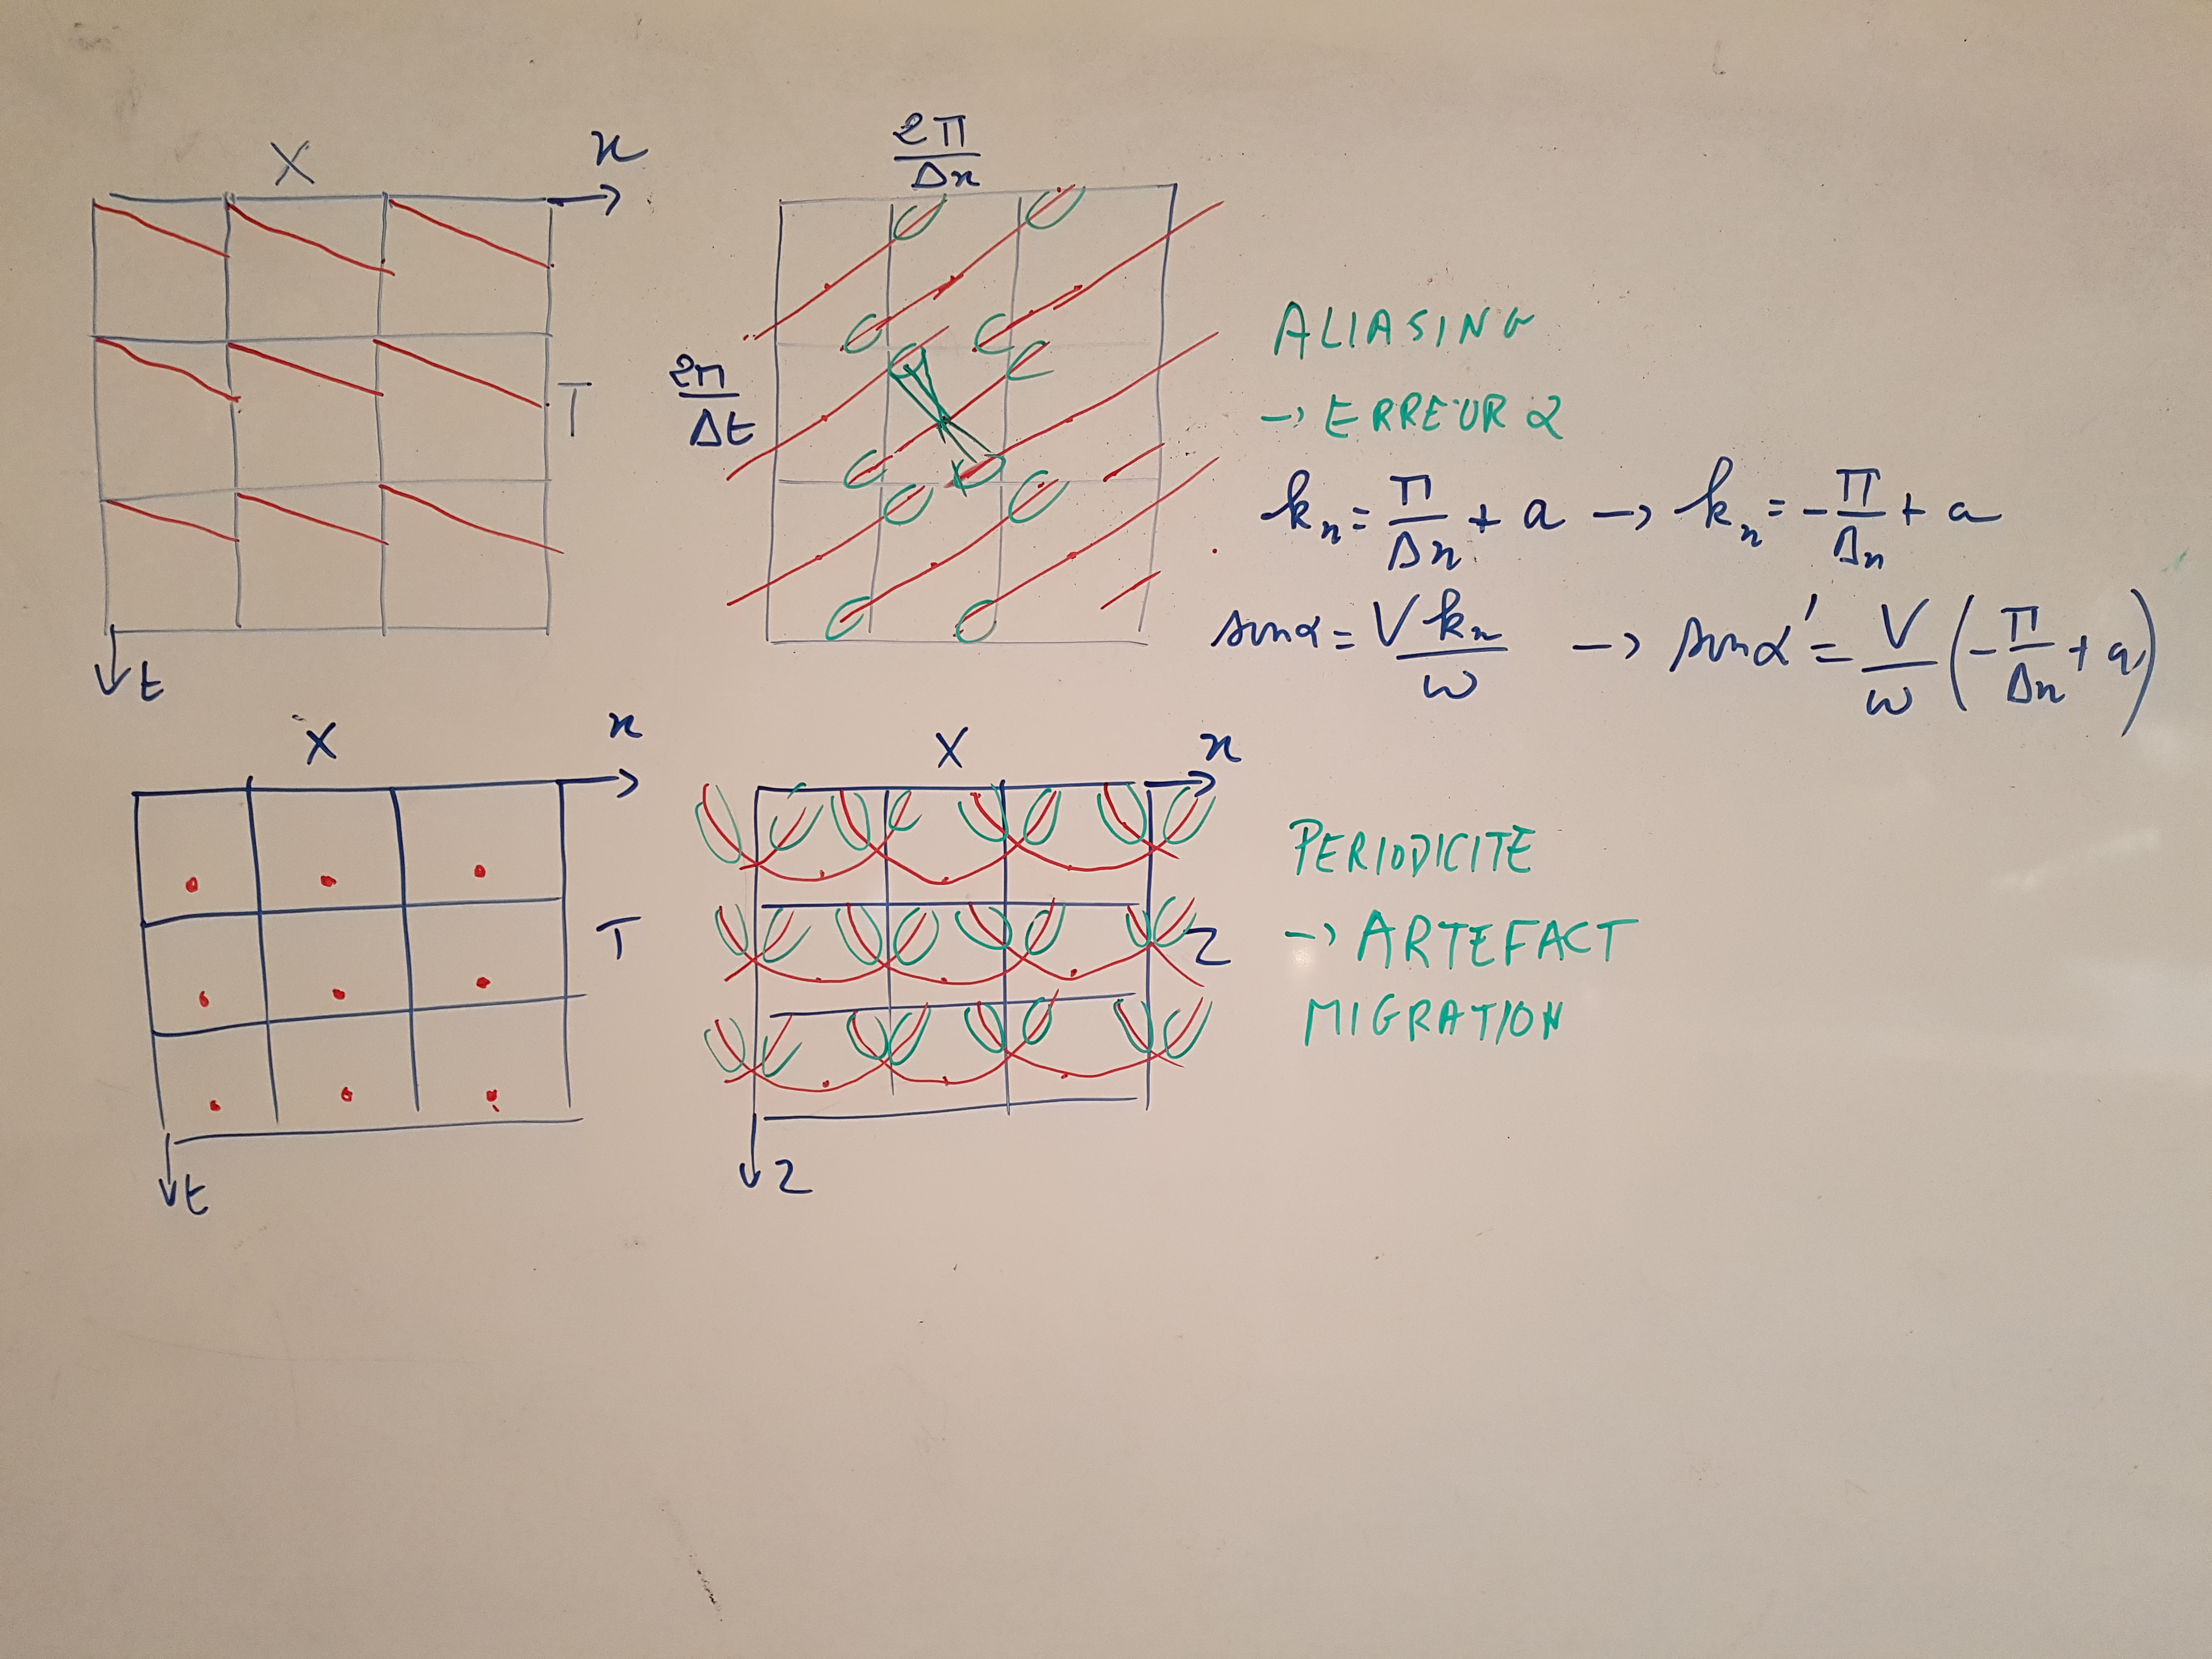 X
x
T
t
2π/Δx
2π/Δt
ALIASING
→ ERREUR α
kx = π/Δx + a → kx = -π/Δx + a
sin α = V kx/ω → sin α' = V/ω (-π/Δx + a)
X
x
T
t
X
x
Z
z
PERIODICITE
→ ARTEFACT
MIGRATION